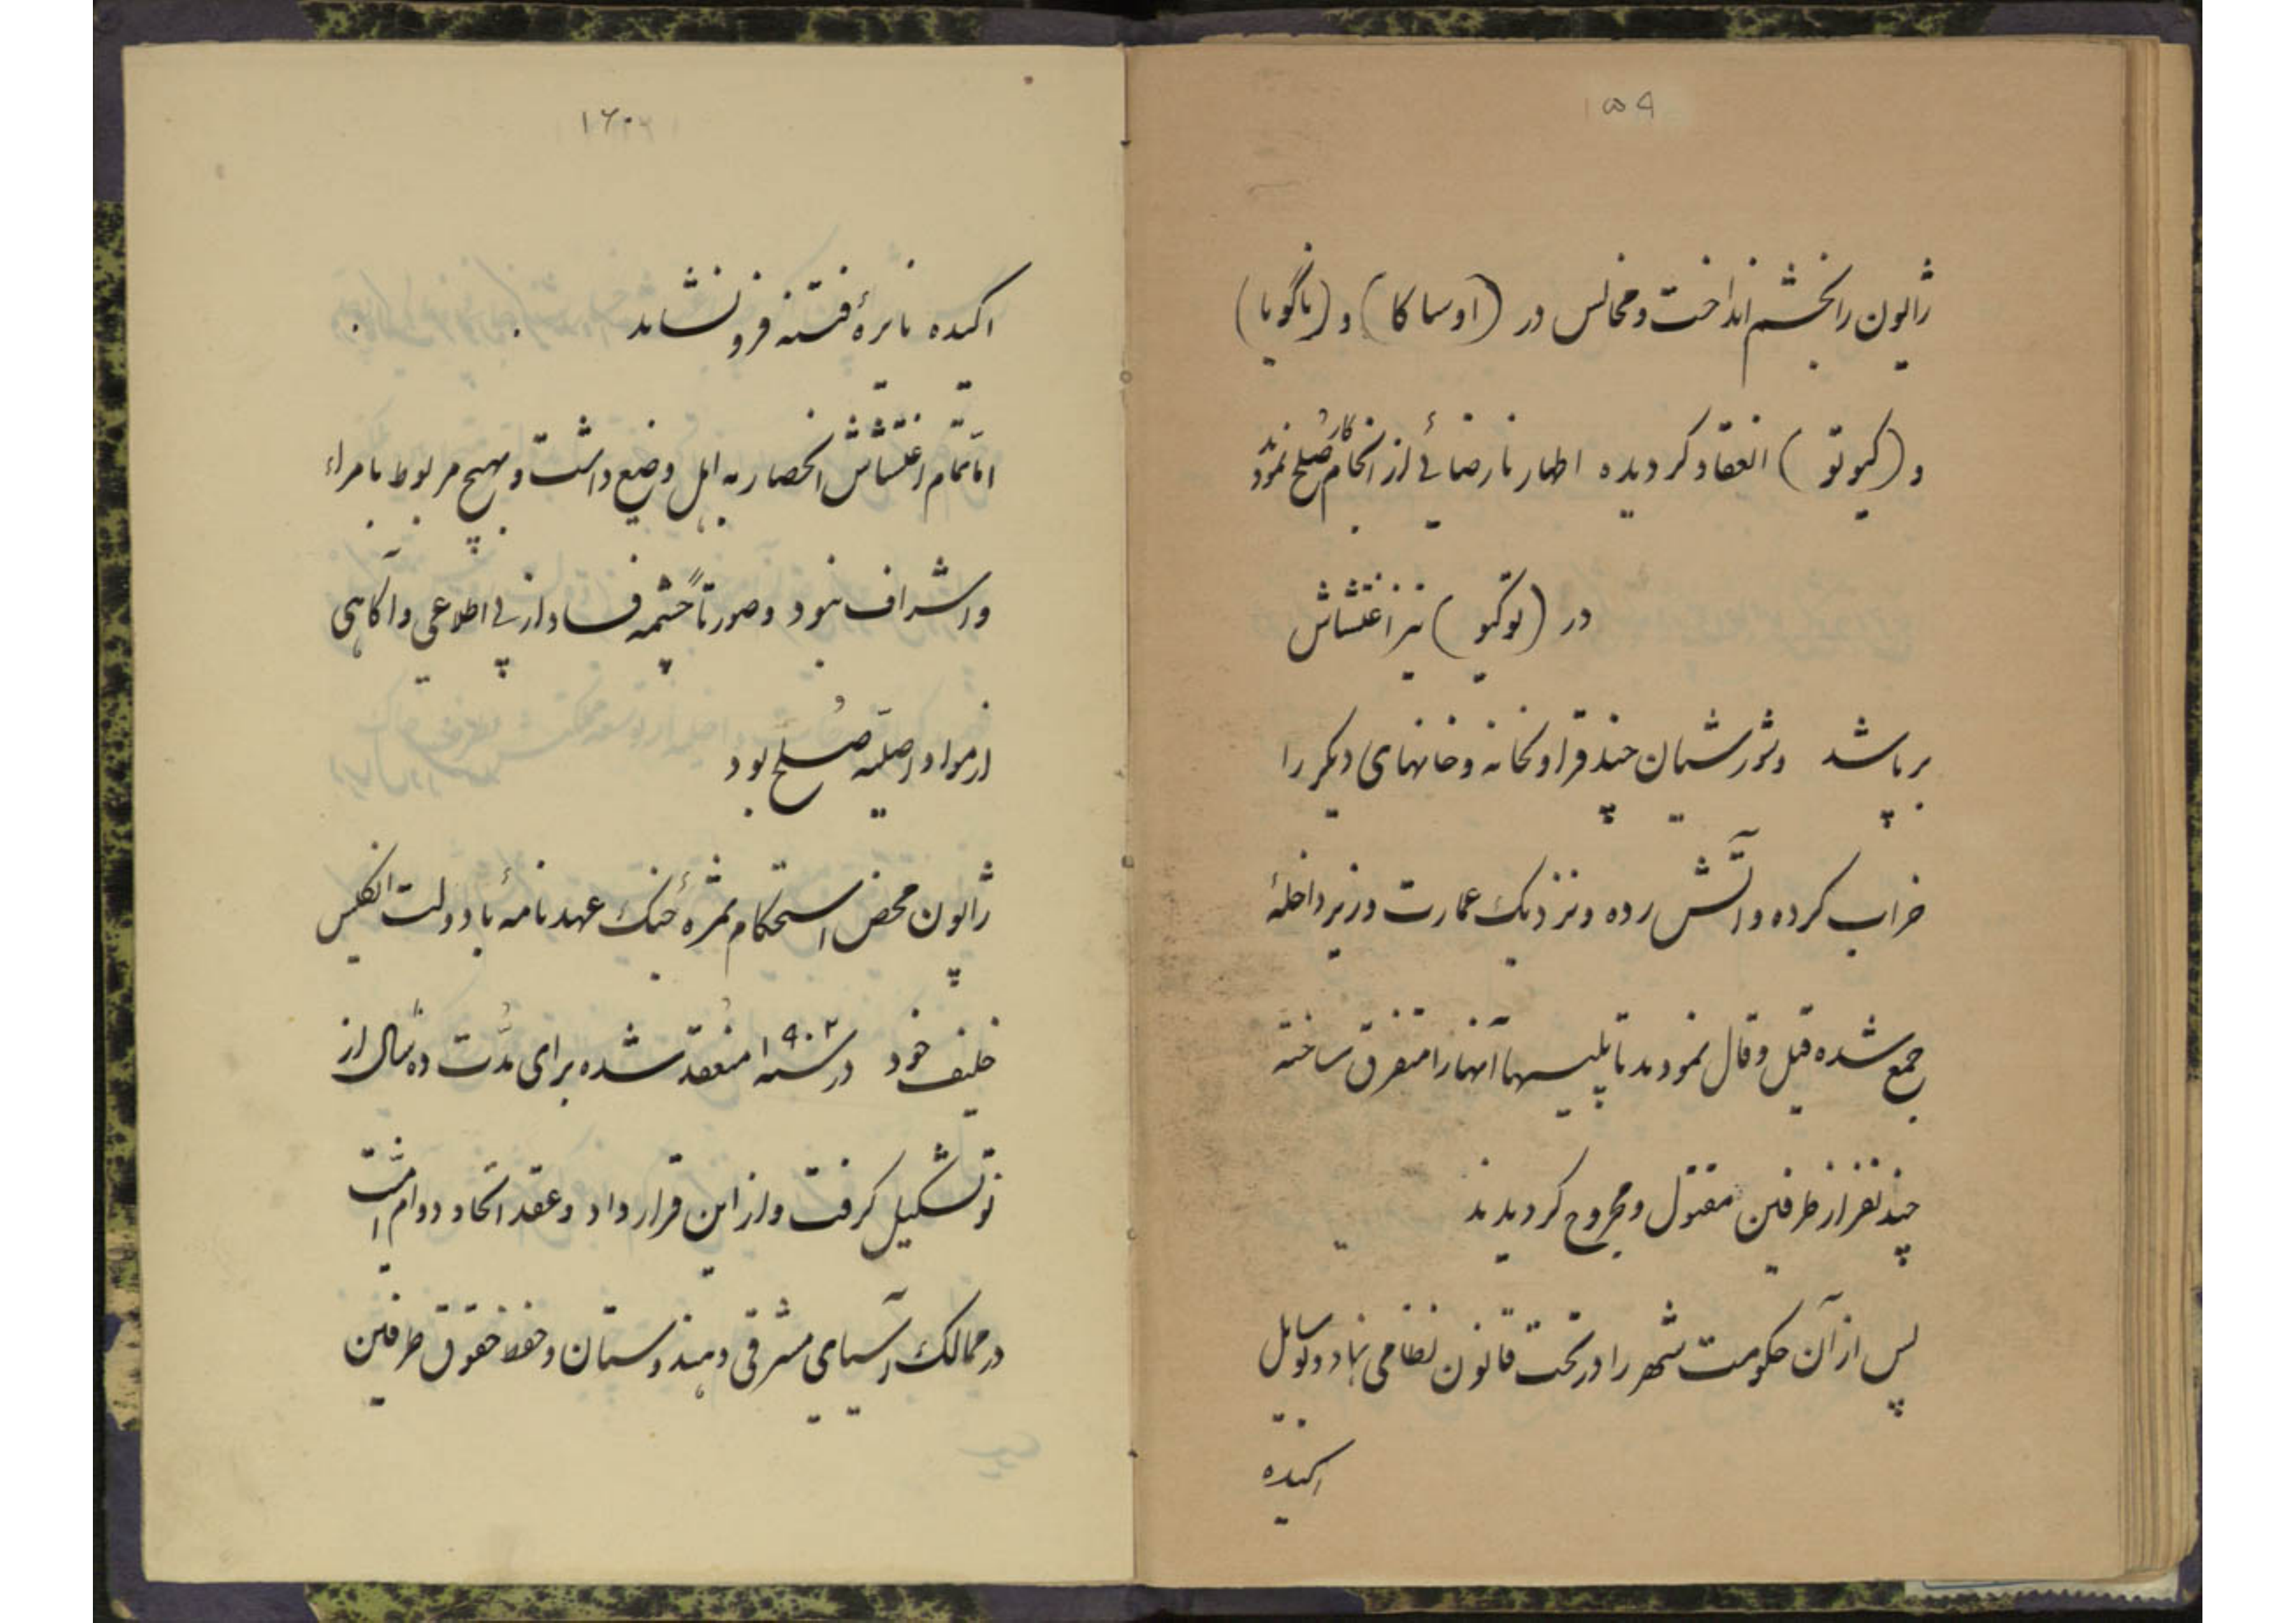 ۱۵۹
ژاپون را بخشم انداخت و مجالس در (اوساکا) و (ناگویا)
و (کیوتو) انعقاد کردیده اظهار نارضائی از انجام کار صلح نمودند
در (توکیو) نیز اغتشاش
برپا شد و شورشیان چند قراولخانه و خانهای دیکر را
خراب کرده و آتش زده و نزدیک عمارت وزیر داخلهٔ
جمع شده قیل و قال نمودند تا پلیسها آنها را متفرق ساخته
چند نفر از طرفین مقتول و مجروح کردیدند
پس از آن حکومت شهر را در تحت قانون نظامی نهاد و بوسایل
اکیده
۱۶۰
اکیده نایرهٔ فتنه فرو نشاند
اما تمام اغتشاش انحصار به اهل وضیع داشت و هیچ مربوط بامراء
و اشراف نبود و صورتاً چشمه فساد از بی اطلاعی و آکاهی
از مواد اصلیه صلح بود
ژاپون محض استحکام ثمرهٔ جنک عهدنامهٔ با دولت انکلیس
حلیف خود در سنه ۱۹۰۲ منعقد شده برای مدت ده سال از
نو تشکیل کرفت و از این قرارداد و عقد اتحاد دوام امنیت
در ممالک آسیای مشرقی و هندوستان و حفظ حقوق طرفین